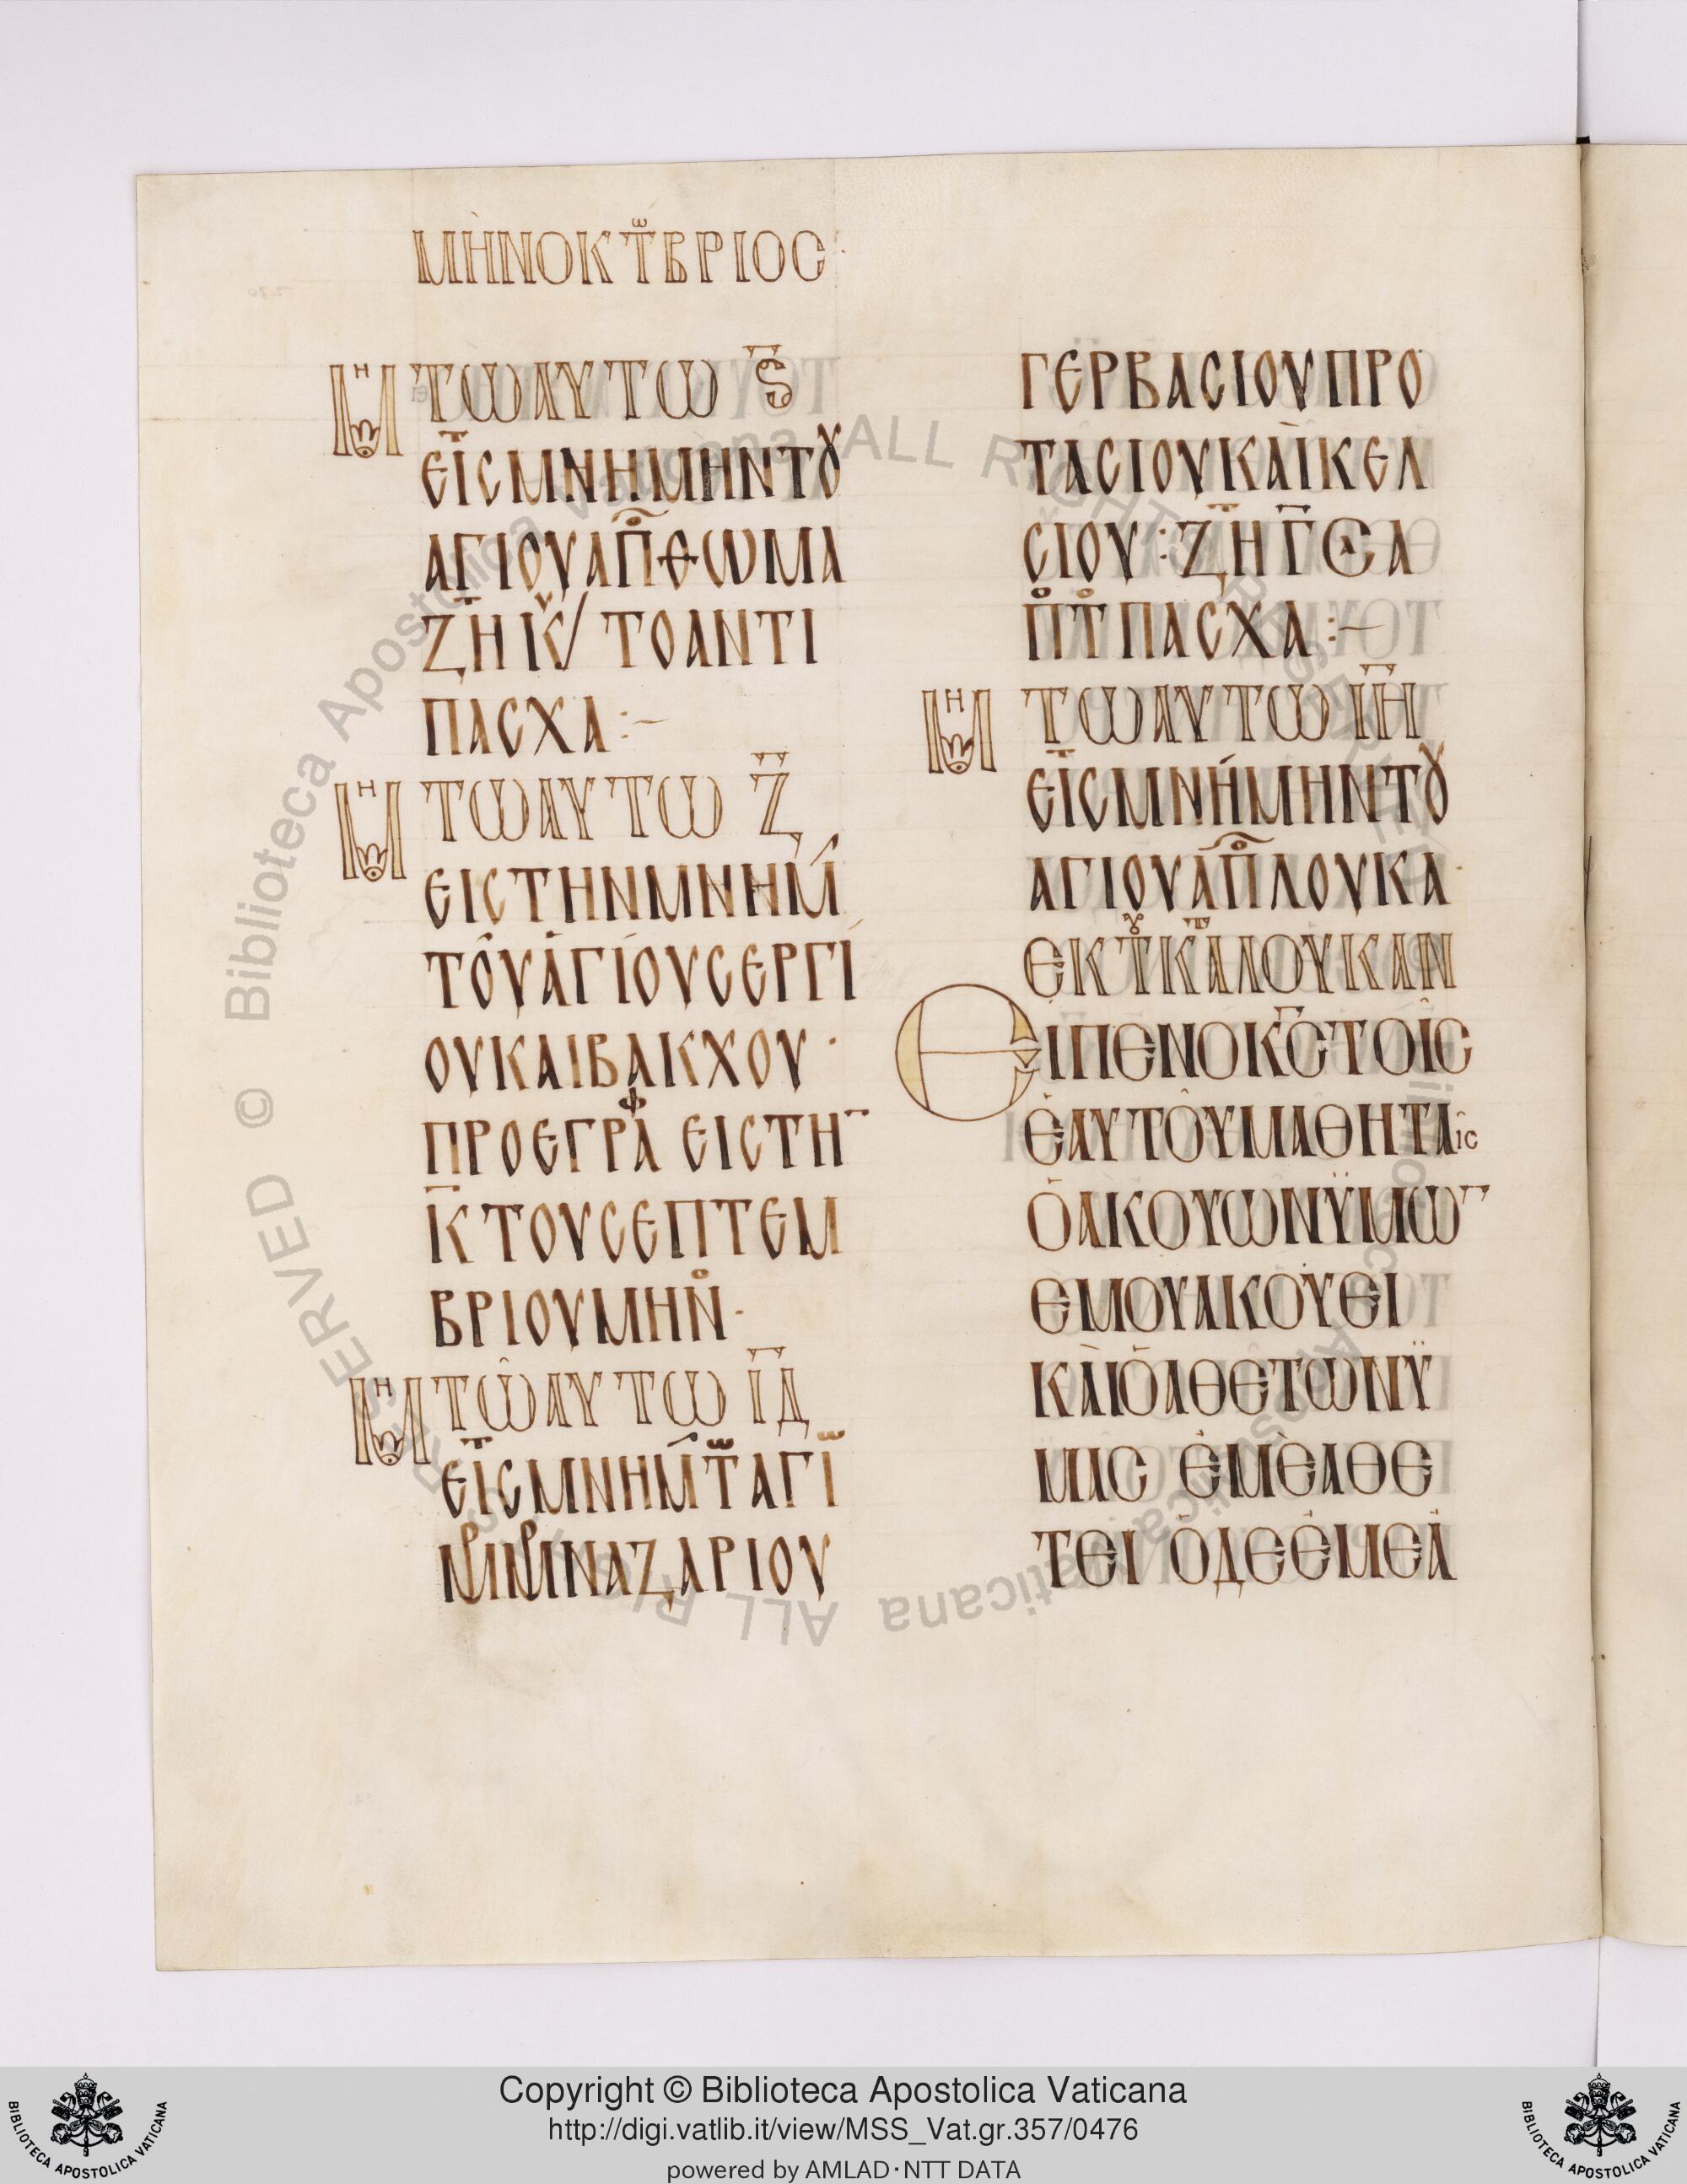 ΜΗΝΟΚΤΩΒΡΙΟC
ΜΗ ΤΩΑΥΤΩ Ϛ
ΕΙCΤΜΝΗΜΗΝΤȢ
ΑΓΙΟΥΑΠΟΘΩΜΑ
ΖΗΤ Κ/ ΤΟΑΝΤΙ
ΠΑCΧΑ:~
ΜΗ ΤΩΑΥΤΩ Ζ
ΕΙCΤΗΝΜΝΗΜ
ΤΟΥΑΓΙΟΥCΕΡΓΙ
ΟΥΚΑΙΒΑΚΧΟΥ·
ΠΡΟΕΓΡΑΦ ΕΙCΤΗ
Κ ΤΟΥCΕΠΤΕΜ
ΒΡΙΟΥΜΗΝΟ·
ΜΗ ΤΩΑΥΤΩ ΙΔ
ΕΙCΤΜΝΗΜΤΩΑΓΙΩ
ΝΑΖΑΡΙΟΥ
ΓΕΡΒΑCΙΟΥΠΡΟ
ΤΑCΙΟΥΚΑΙΚΕΛ
CΙΟΥ:ΖΗΤΓCΑ
ΠΟΤΟΠΑCΧΑ:~
ΜΗ ΤΩΑΥΤΩ ΙΗ
ΕΙCΤΜΝΗΜΗΝΤȢ
ΑΓΙΟΥΑΠΟΛΟΥΚΑ·
ΕΚΤΟΥΚΑΤΛΟΥΚΑΝ
ΕΙΠΕΝΟΚCΤΟΙC
ΕΑΥΤΟΥΜΑΘΗΤΑΙC
ΟΑΚΟΥΩΝΫΜΩ
ΕΜΟΥΑΚΟΥΕΙ
ΚΑΙΟΑΘΕΤΩΝΫ
ΜΑC ΕΜΕΑΘΕ
ΤΕΙ ΟΔΕΕΜΕΑ
Copyright © Biblioteca Apostolica Vaticana
http://digi.vatlib.it/view/MSS_Vat.gr.357/0476
powered by AMLAD·NTT DATA
BIBLIOTECA APOSTOLICA VATICANA
BIBLIOTECA APOSTOLICA VATICANA